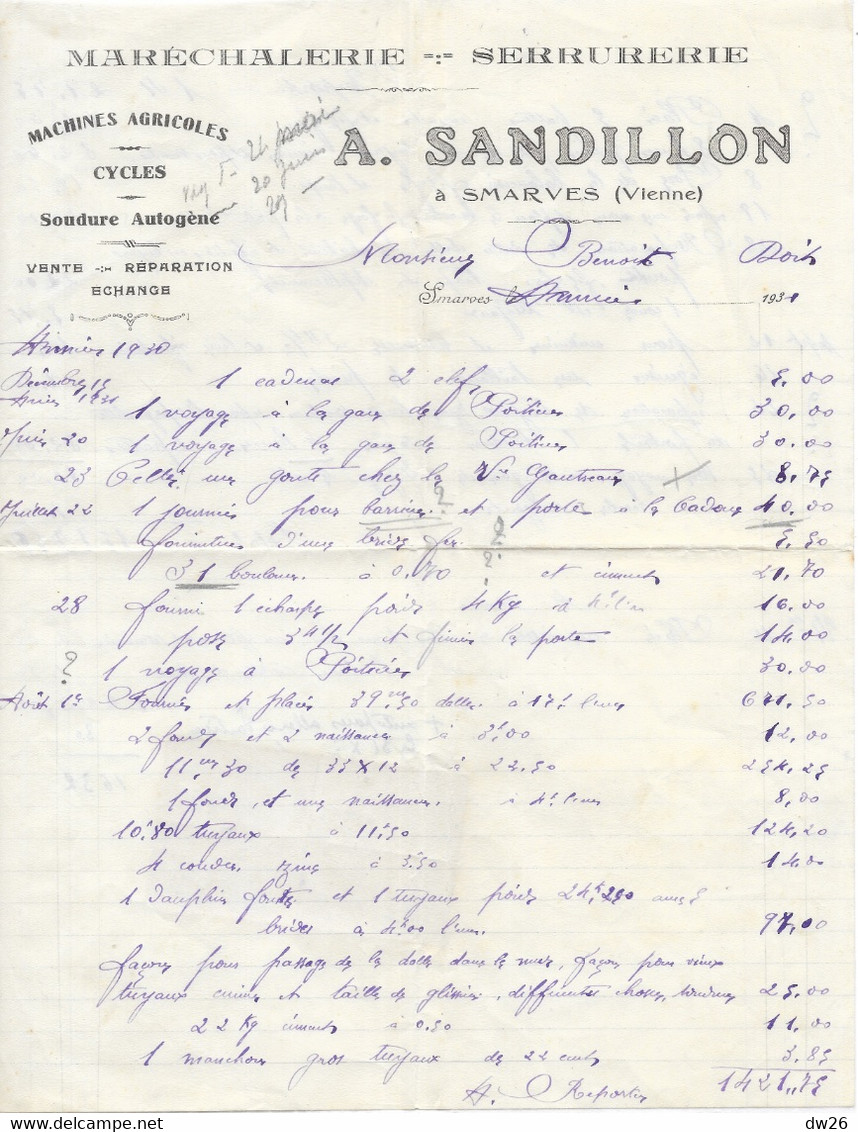 MARÉCHALERIE -:- SERRURERIE
MACHINES AGRICOLES
CYCLES
Soudure Autogène
VENTE -:- RÉPARATION
ECHANGE
A. SANDILLON
à SMARVES (Vienne)
20 juin
29
Monsieur Benoit Doit
Smarves le 1931
1930
Décembre 15 1 cadenas 2 clef 5,00
1931 1 voyage à la gare de Poitiers 30,00
Juin 20 1 voyage à la gare de Poitiers 30,00
23 une goute chez la Vve Gautreau 8,75
Juillet 22 1 journée pour barrière ? et porte à la 40,00
fournitures d'une bride fer 5,50
31 boulons à 0,70 ? et ciment 21,70
28 fourni 1 écharpe poids 4 Kg à 4f l'un 16,00
pose 3h1/2 et finir la porte 14,00
? 1 voyage à Poitiers 30,00
Août 1er Fournis et placés 39m,50 dalles à 17f l'un 671,50
2 fonds et 2 naissances à 3f,00 12,00
11m,30 de 33 X 12 à 22,50 254,25
1 fond, et une naissance à 4f l'un 8,00
10,80 tuyaux à 11f,50 124,20
4 coudes zinc à 3f,50 14,00
1 dauphin fonte et 1 tuyaux poids 24k,250 avec
brides à 4f,00 l'un. 97,00
façon pour passage de la dalle dans le mur, façon pour vieux
tuyaux et taille de différentes choses, 25,00
22 Kg ciment à 0,50 11,00
1 manchon gros tuyaux de 22 cent 3,85
A. Reporter 1421,75
dw26